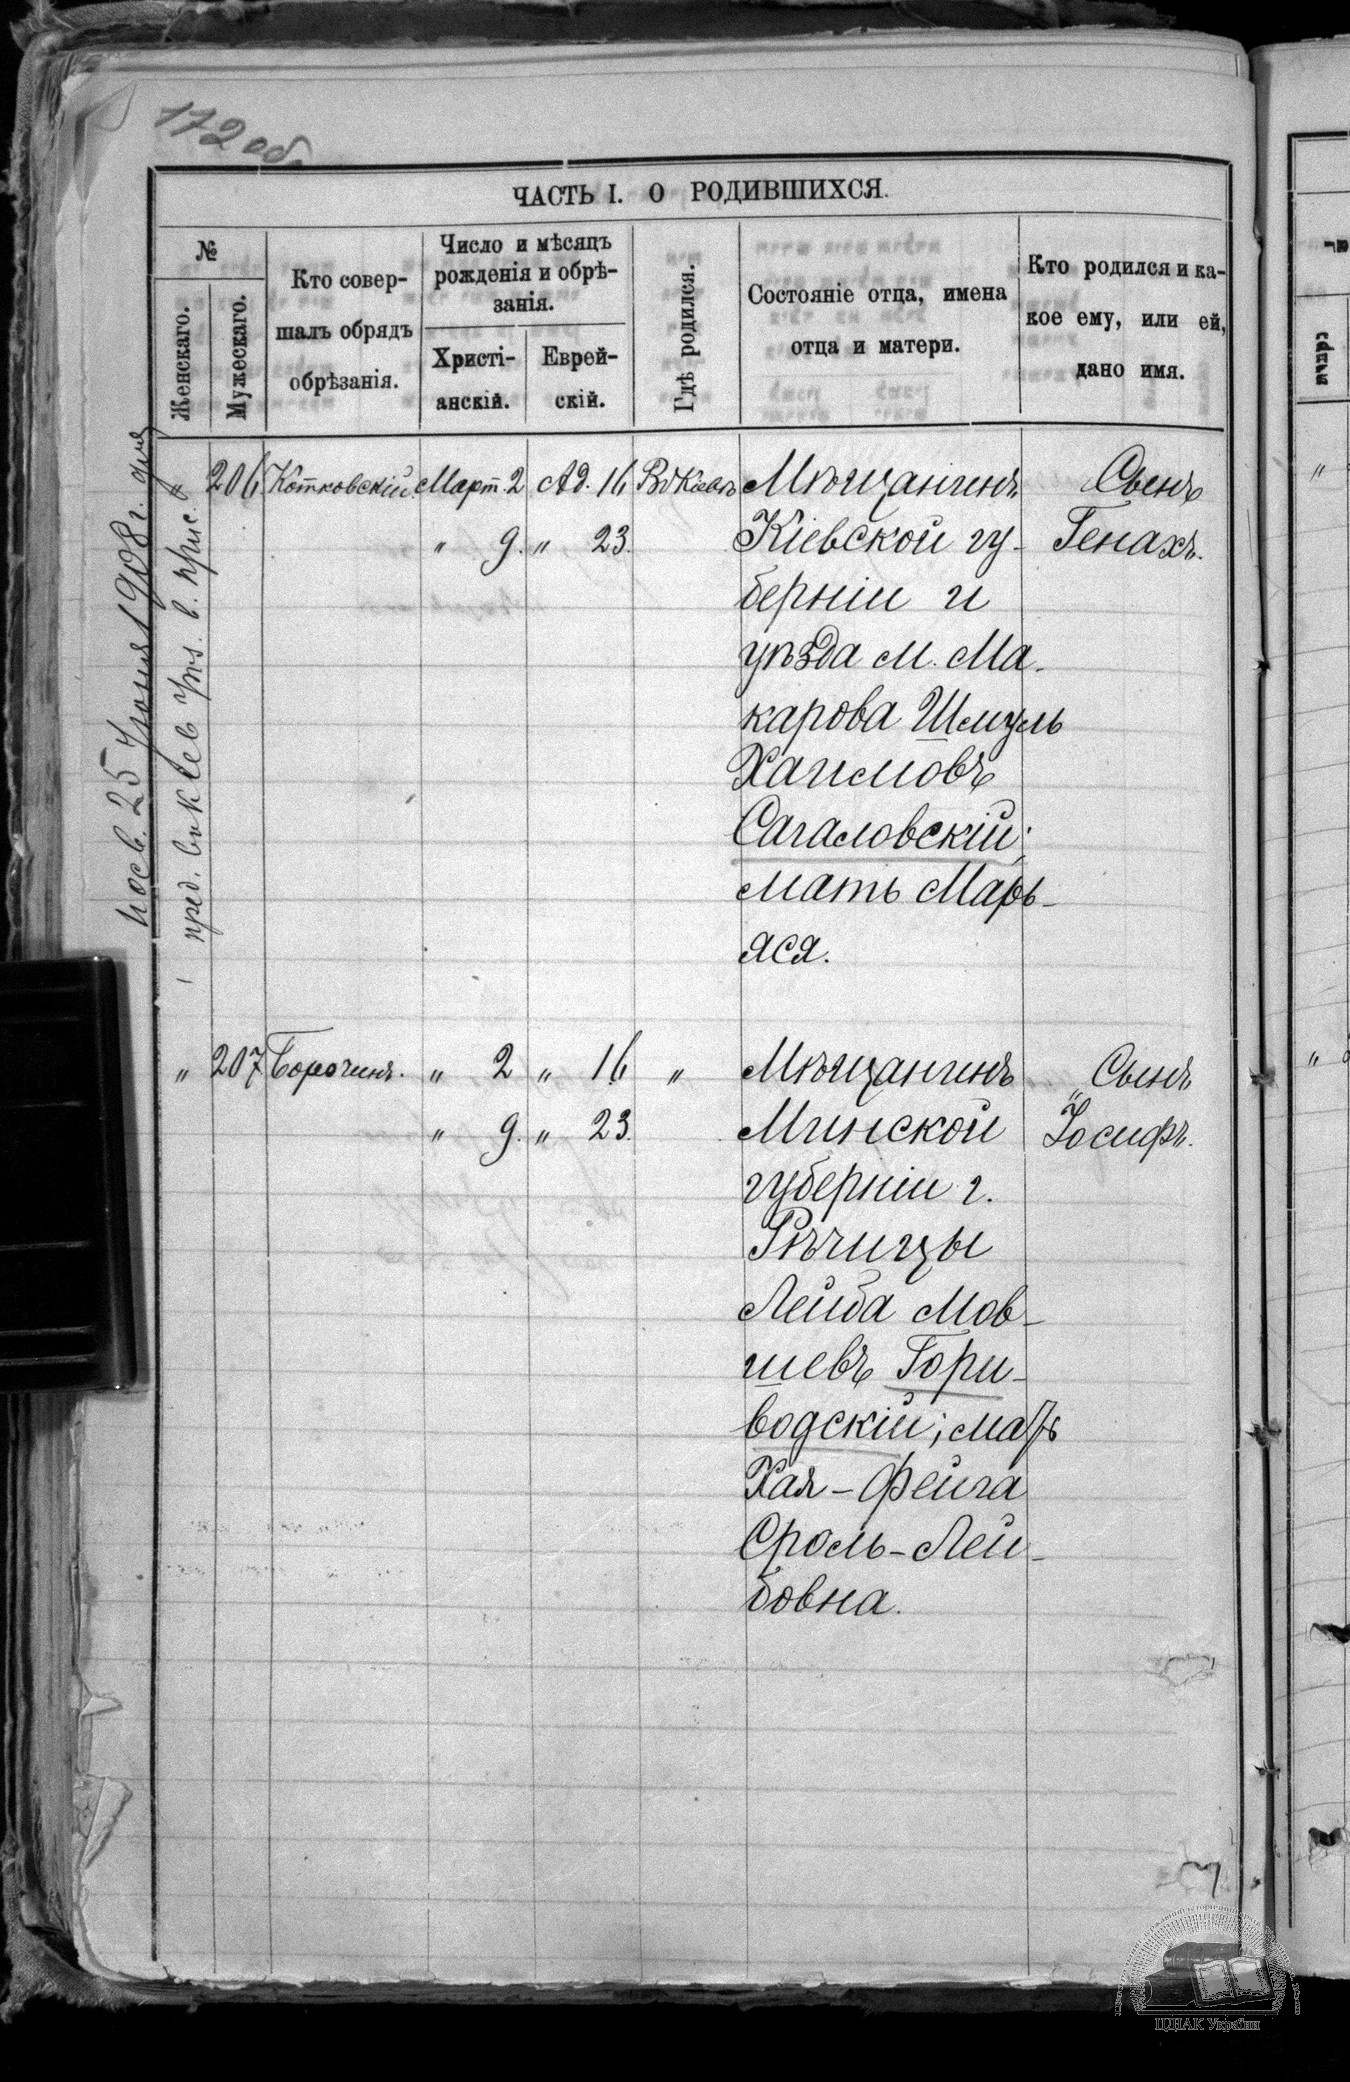 172 об.
ЧАСТЬ I. О РОДИВШИХСЯ.
№
Женскаго.
Мужескаго.
Кто совер-
шалъ обрядъ
обрѣзанія.
Число и мѣсяцъ
рожденія и обрѣ-
занія.
Христі-
анскій.
Еврей-
скій.
Гдѣ родился.
Состояніе отца, имена
отца и матери.
Кто родился и ка-
кое ему, или ей,
дано имя.
посв. 25 Іюня 1908 г. для
пред. въ Кіев
206 Котковскій Март. 2 Ад. 16 Въ Кіевѣ Мѣщанинъ Сынъ
" 9. " 23. Кіевской гу- Генахъ.
берніи и
уѣзда м. Ма-
карова Шмуль
Хаимовъ
Сагаловскій;
мать Марь-
яся.
" 207 Борочинъ. " 2 " 16 " Мѣщанинъ " Сынъ
" 9. " 23. Минской Іосифъ.
губерніи г.
Рѣчицы
Лейба Мов-
шевъ Гори-
водскій; мать
Хая-Фейга
Сроль-Лей-
бовна.
ЦДІАК України